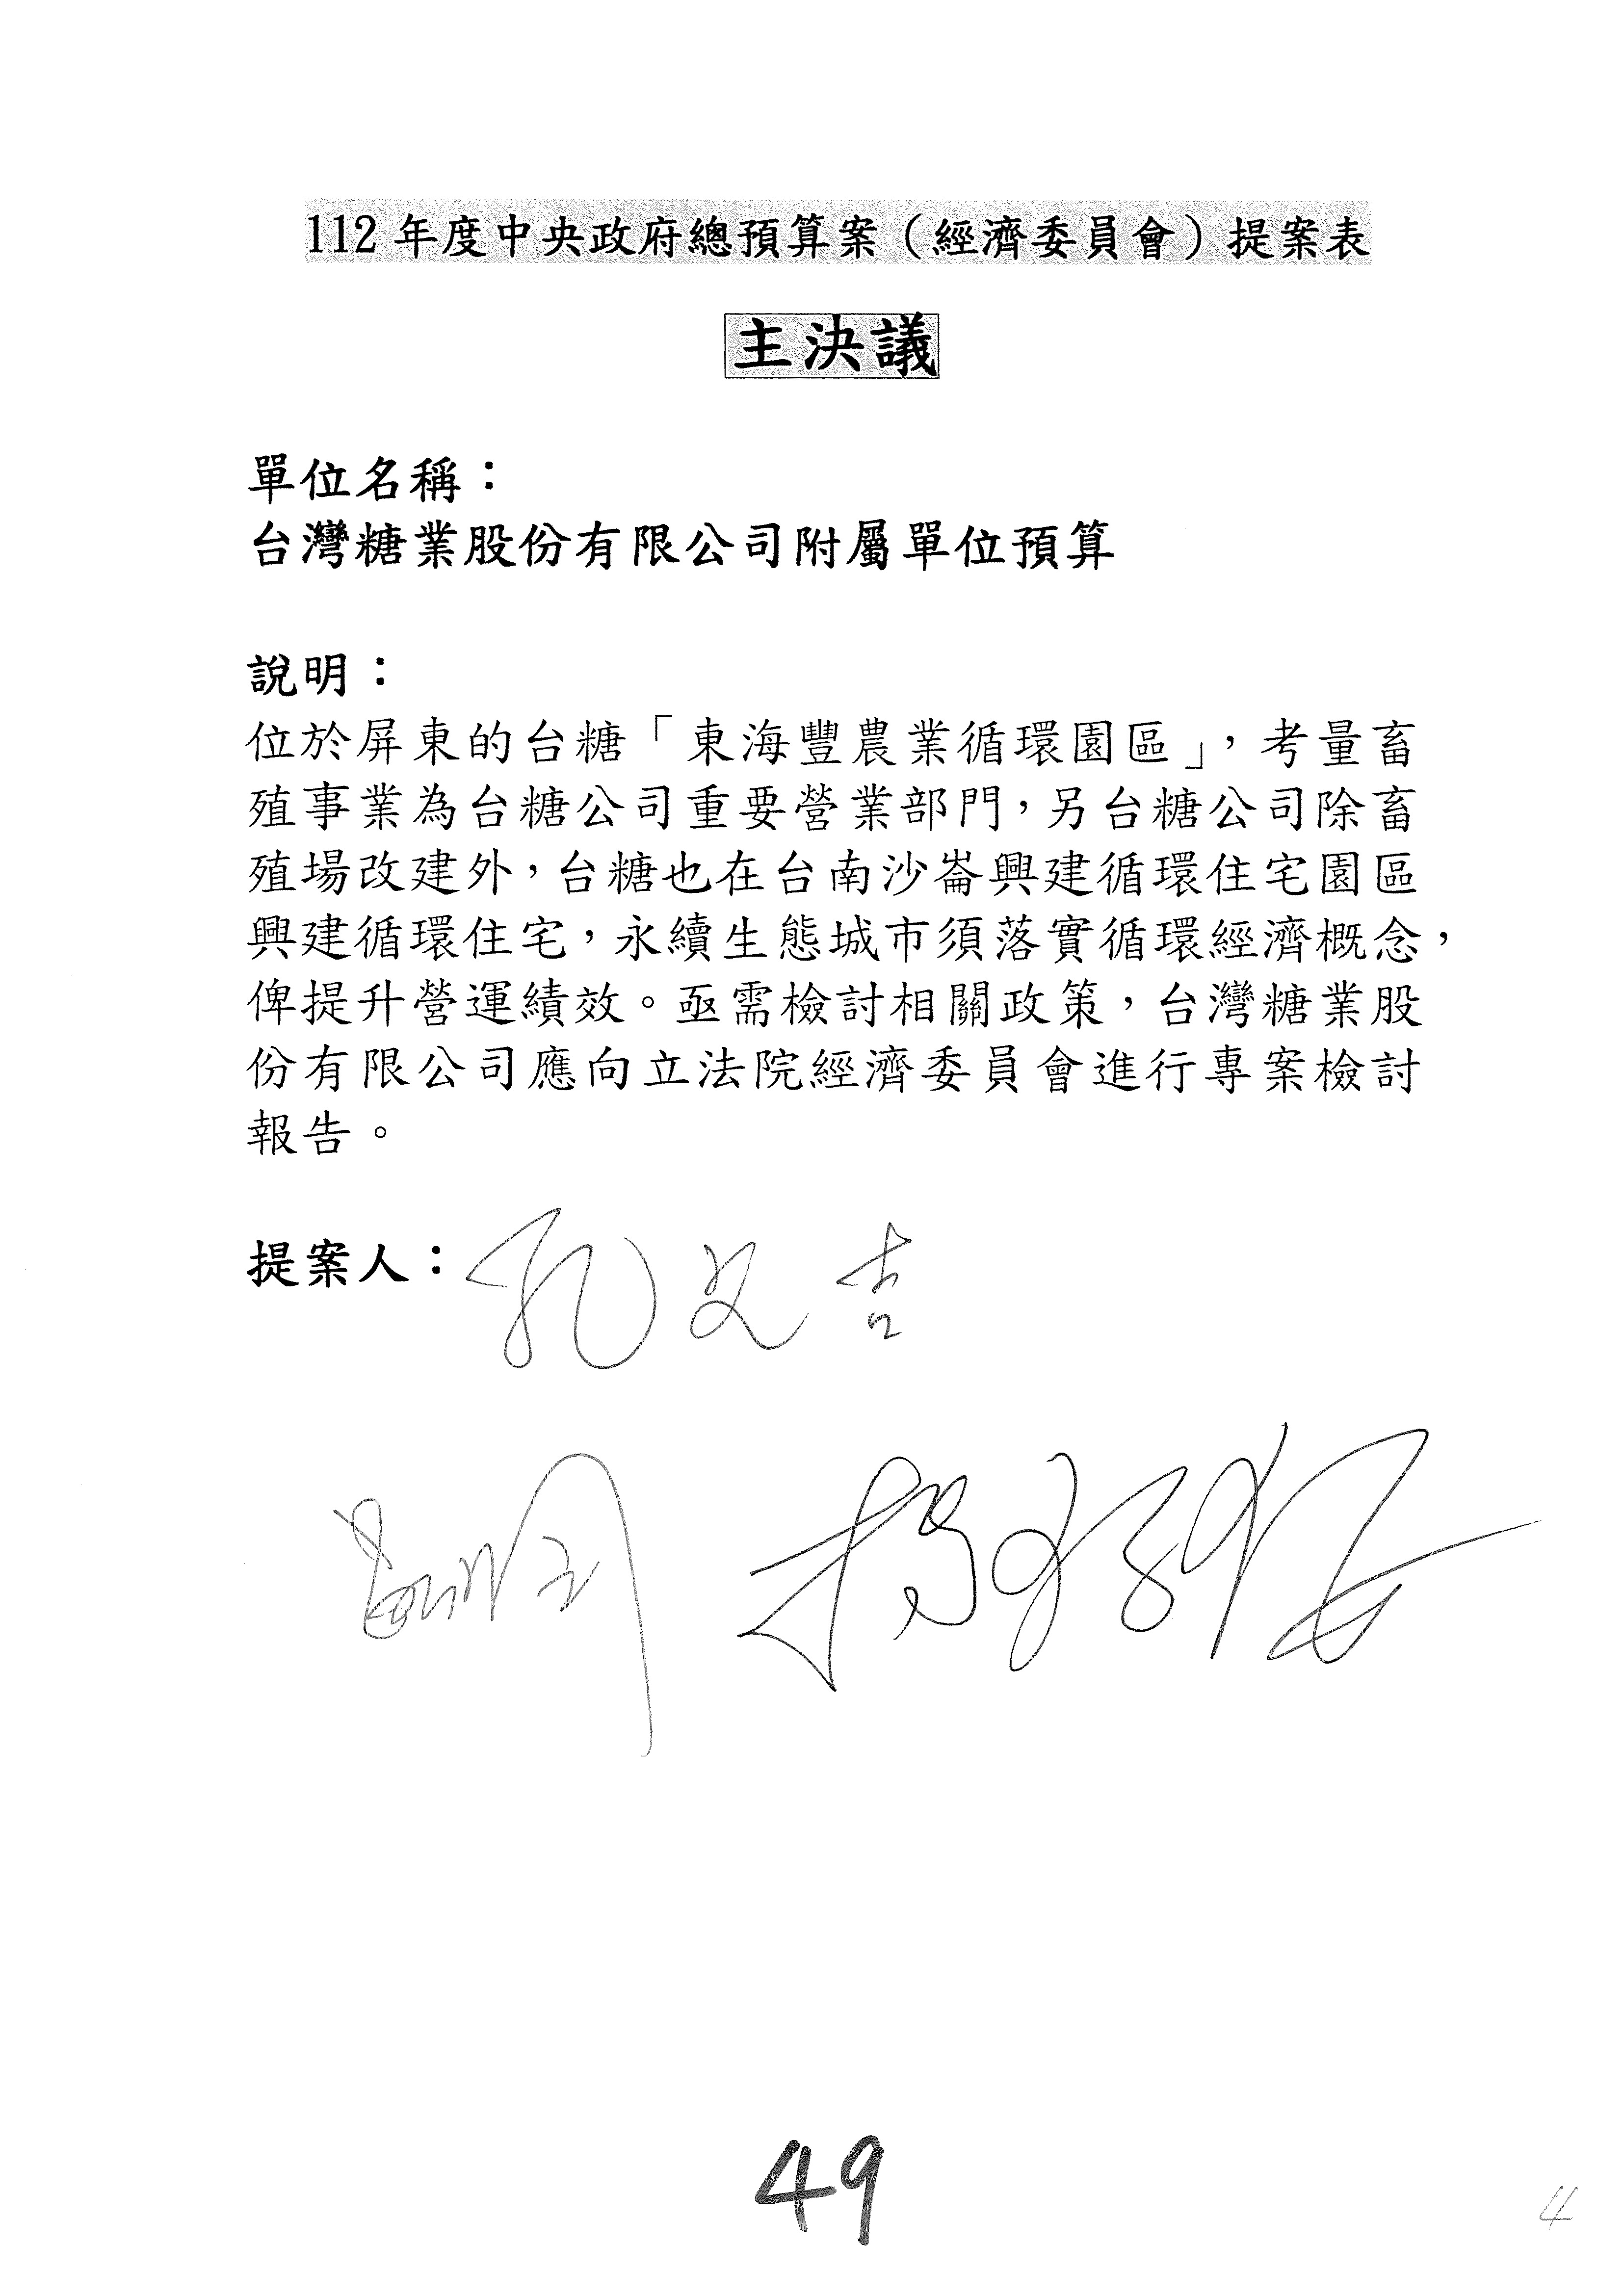 112年度中央政府總預算案（經濟委員會）提案表
主決議
單位名稱：
台灣糖業股份有限公司附屬單位預算
說明：
位於屏東的台糖「東海豐農業循環園區」，考量畜
殖事業為台糖公司重要營業部門，另台糖公司除畜
殖場改建外，台糖也在台南沙崙興建循環住宅園區
興建循環住宅，永續生態城市須落實循環經濟概念，
俾提升營運績效。亟需檢討相關政策，台灣糖業股
份有限公司應向立法院經濟委員會進行專案檢討
報告。
提案人：孔文吉
49
4